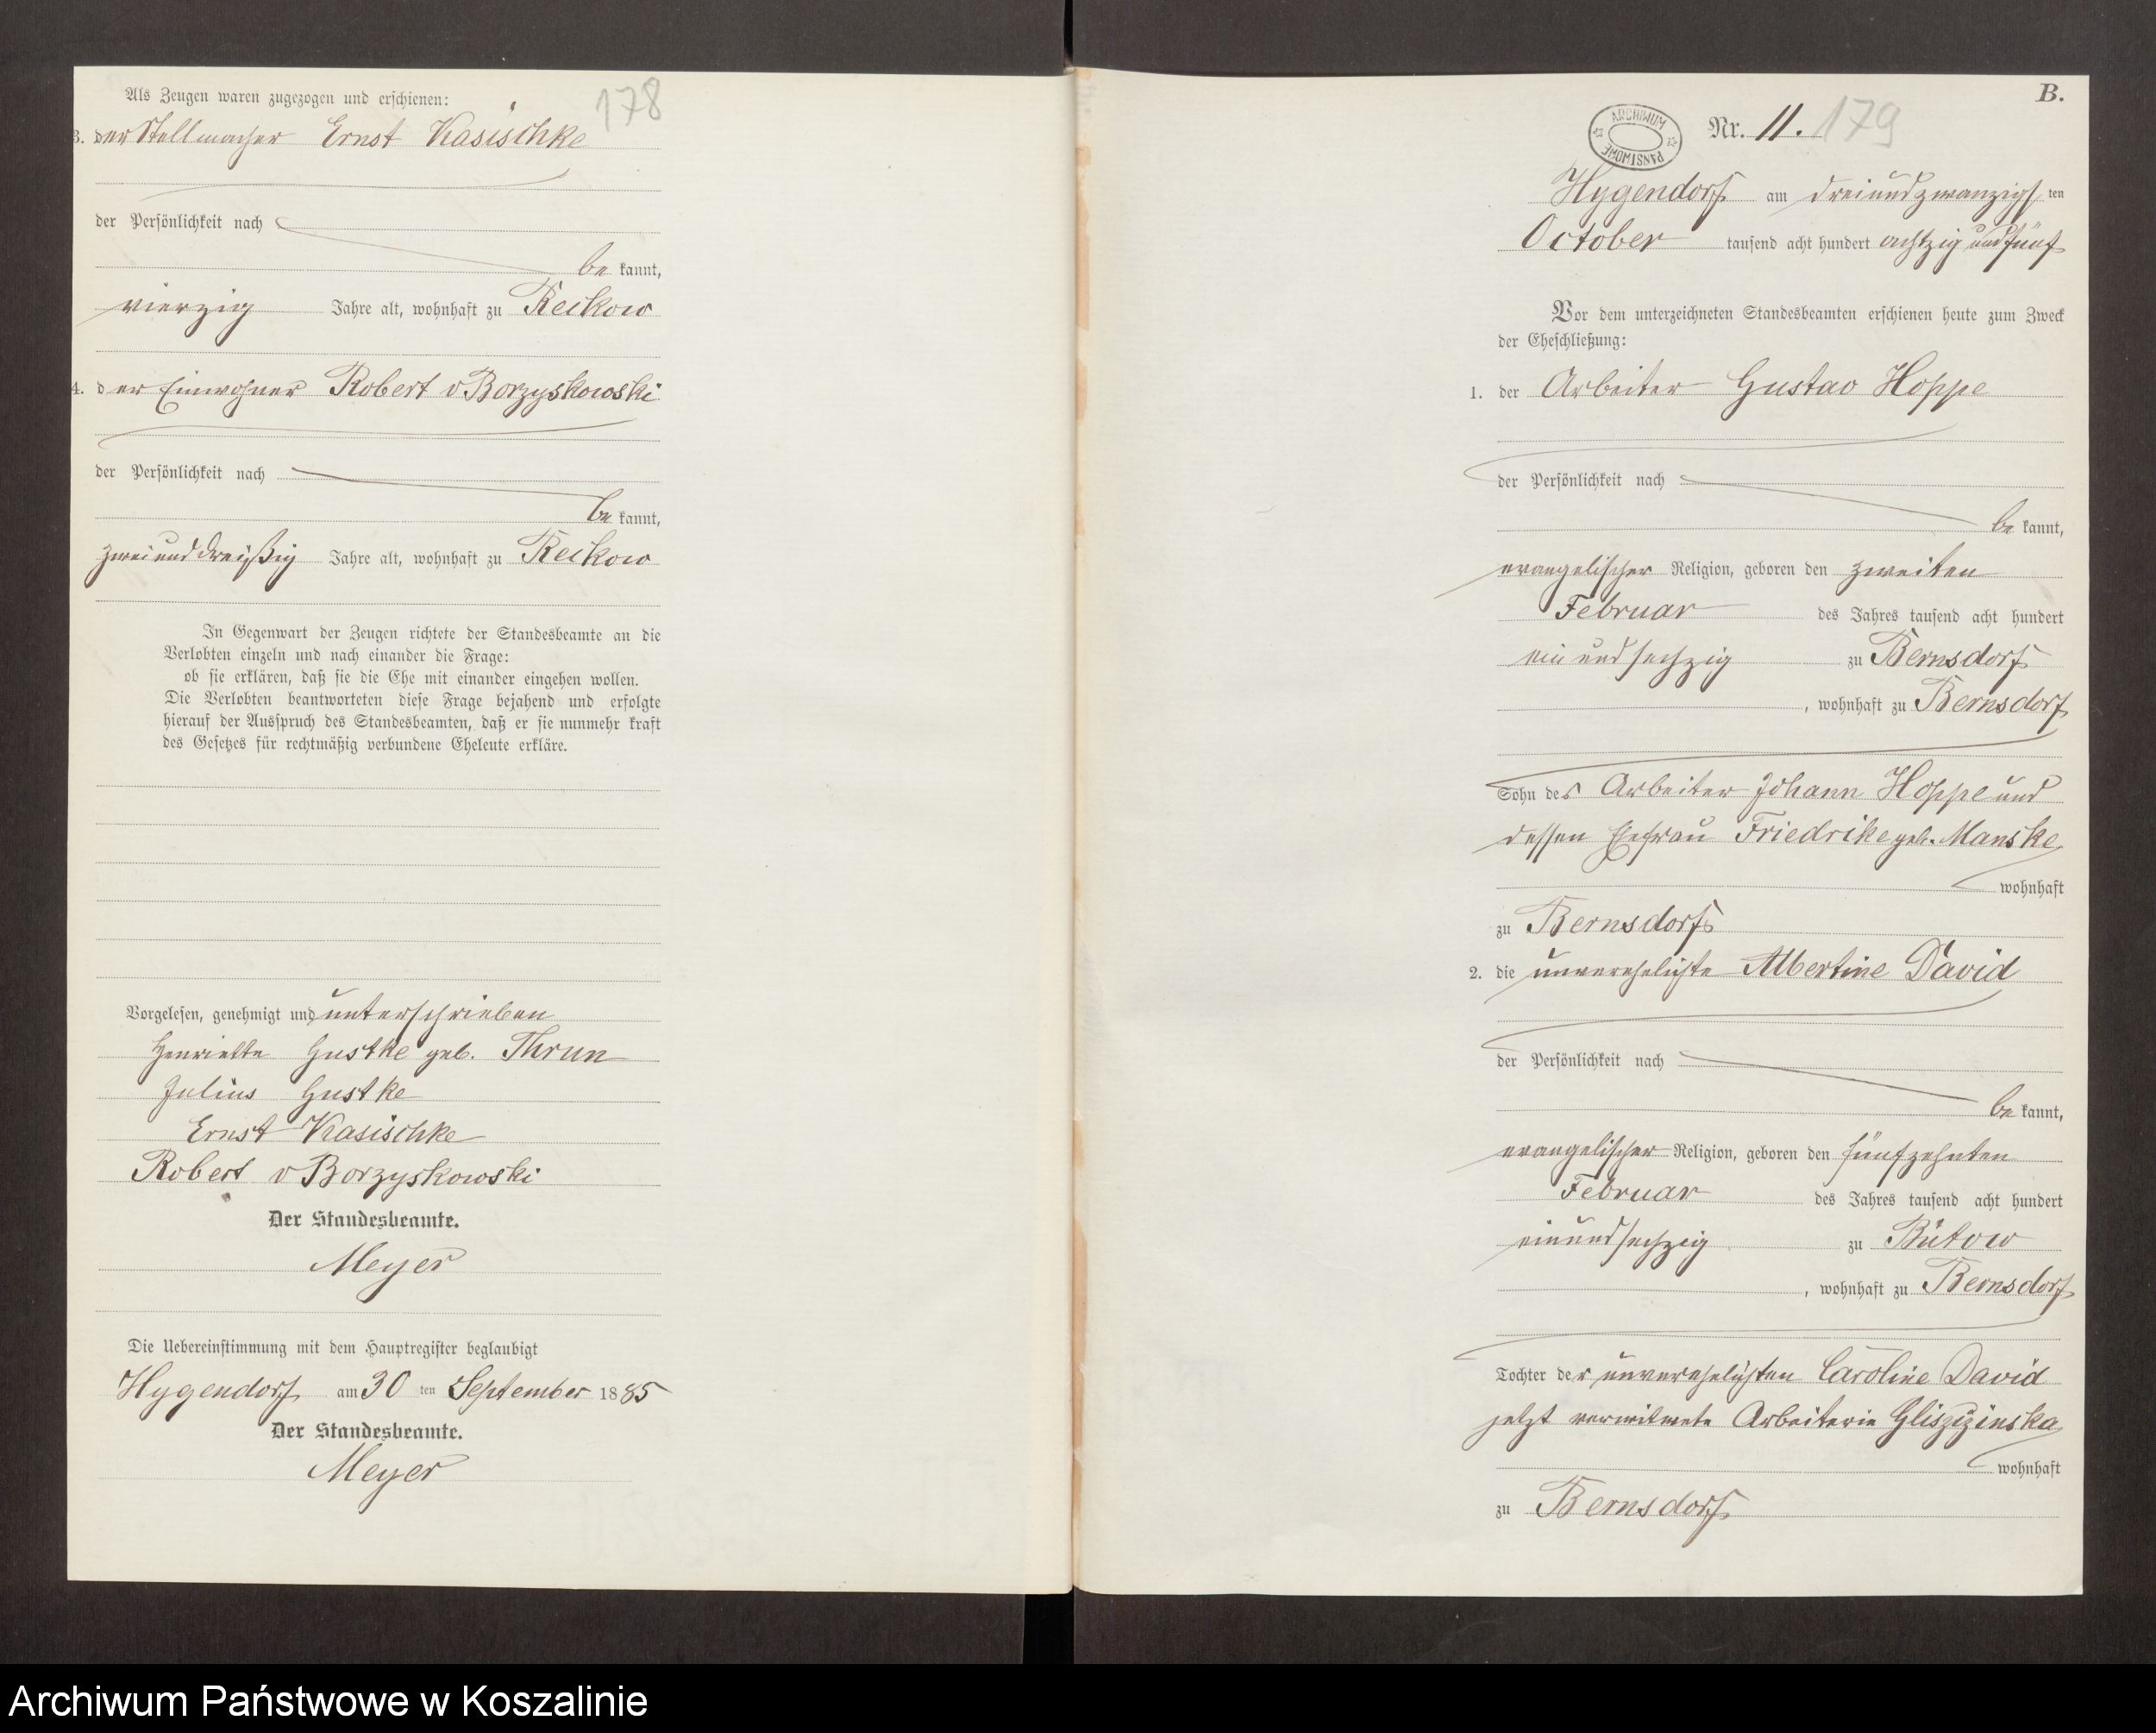 178
Als Zeugen waren zugezogen und erschienen:
3. der Stellmacher Ernst Kasischke
der Persönlichkeit nach
be kannt,
vierzig Jahre alt, wohnhaft zu Reckow
4. der Einwohner Robert v Borzyskowski
der Persönlichkeit nach
be kannt,
zweiunddreißig Jahre alt, wohnhaft zu Reckow
In Gegenwart der Zeugen richtete der Standesbeamte an die
Verlobten einzeln und nach einander die Frage:
ob sie erklären, daß sie die Ehe mit einander eingehen wollen.
Die Verlobten beantworteten diese Frage bejahend und erfolgte
hierauf der Ausspruch des Standesbeamten, daß er sie nunmehr kraft
des Gesetzes für rechtmäßig verbundene Eheleute erkläre.
Vorgelesen, genehmigt und unterschrieben
Henriette Gustke geb. Thrun
Julius Gustke
Ernst Kasischke
Robert v Borzyskowski
Der Standesbeamte.
Meyer
Die Uebereinstimmung mit dem Hauptregister beglaubigt
Hygendorf am 30 ten September 1885
Der Standesbeamte.
Meyer
B.
ARCHIWUM PAŃSTWOWE
Nr. 11. 179
Hygendorf am dreiundzwanzigsten
October tausend acht hundert achtzig und fünf
Vor dem unterzeichneten Standesbeamten erschienen heute zum Zweck
der Eheschließung:
1. der Arbeiter Gustav Hoppe
der Persönlichkeit nach
be kannt,
evangelischer Religion, geboren den zweiten
Februar des Jahres tausend acht hundert
ein und sechzig zu Bernsdorf
, wohnhaft zu Bernsdorf
Sohn des Arbeiter Johann Hoppe und
dessen Ehefrau Friedrike geb. Manske
wohnhaft
zu Bernsdorf
2. die unverehelichte Albertine David
der Persönlichkeit nach
be kannt,
evangelischer Religion, geboren den fünfzehnten
Februar des Jahres tausend acht hundert
einundsechzig zu Bütow
, wohnhaft zu Bernsdorf
Tochter der unverehelichten Caroline David
jetzt verwitwete Arbeiterin Gliszizinska
wohnhaft
zu Bernsdorf
Archiwum Państwowe w Koszalinie